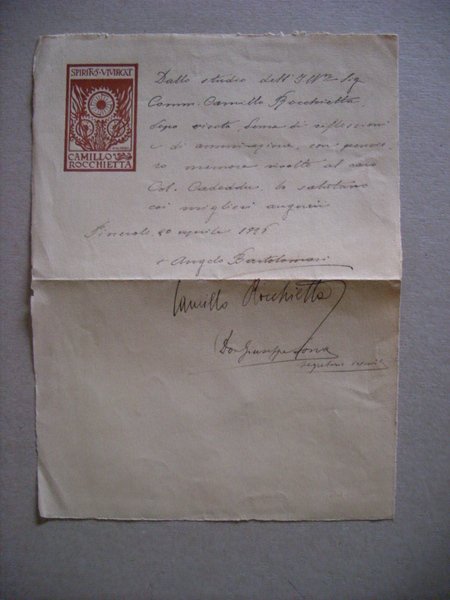 SPIRITVS·VIVIFICAT
CAMILLO
ROCCHIETTA
Dallo studio dell' Sig
Comm. Camillo Rocchietta
dopo visita densa di riflessioni
e di ammirazione, con pensie-
ro memore rivolto al caro
Col. Cadeddu, lo salutano
coi migliori auguri
Pinerolo 20 aprile 1926
+ Angelo Bartolomasi
Camillo Rocchietta
Don Giuseppe
segretario